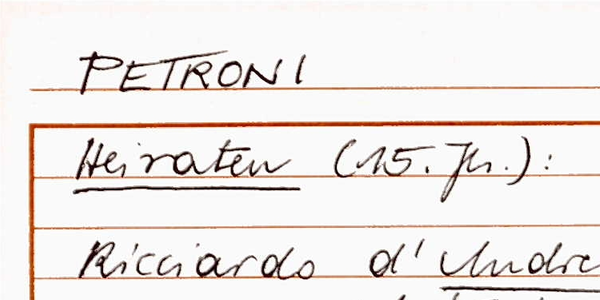 PETRONI
Heiraten (15. Jh.):
Ricciardo d'